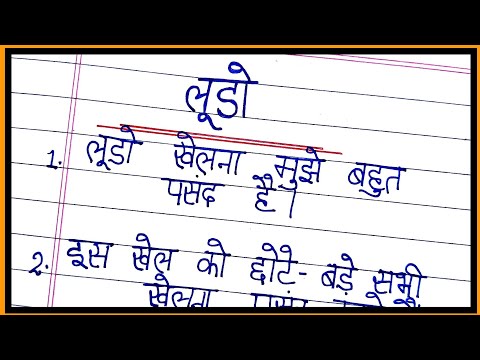 लूडो
1. लूडो खेलना मुझे बहुत
पसद है।
2. इस खेल को छोटे-बड़े सभी
खेलना